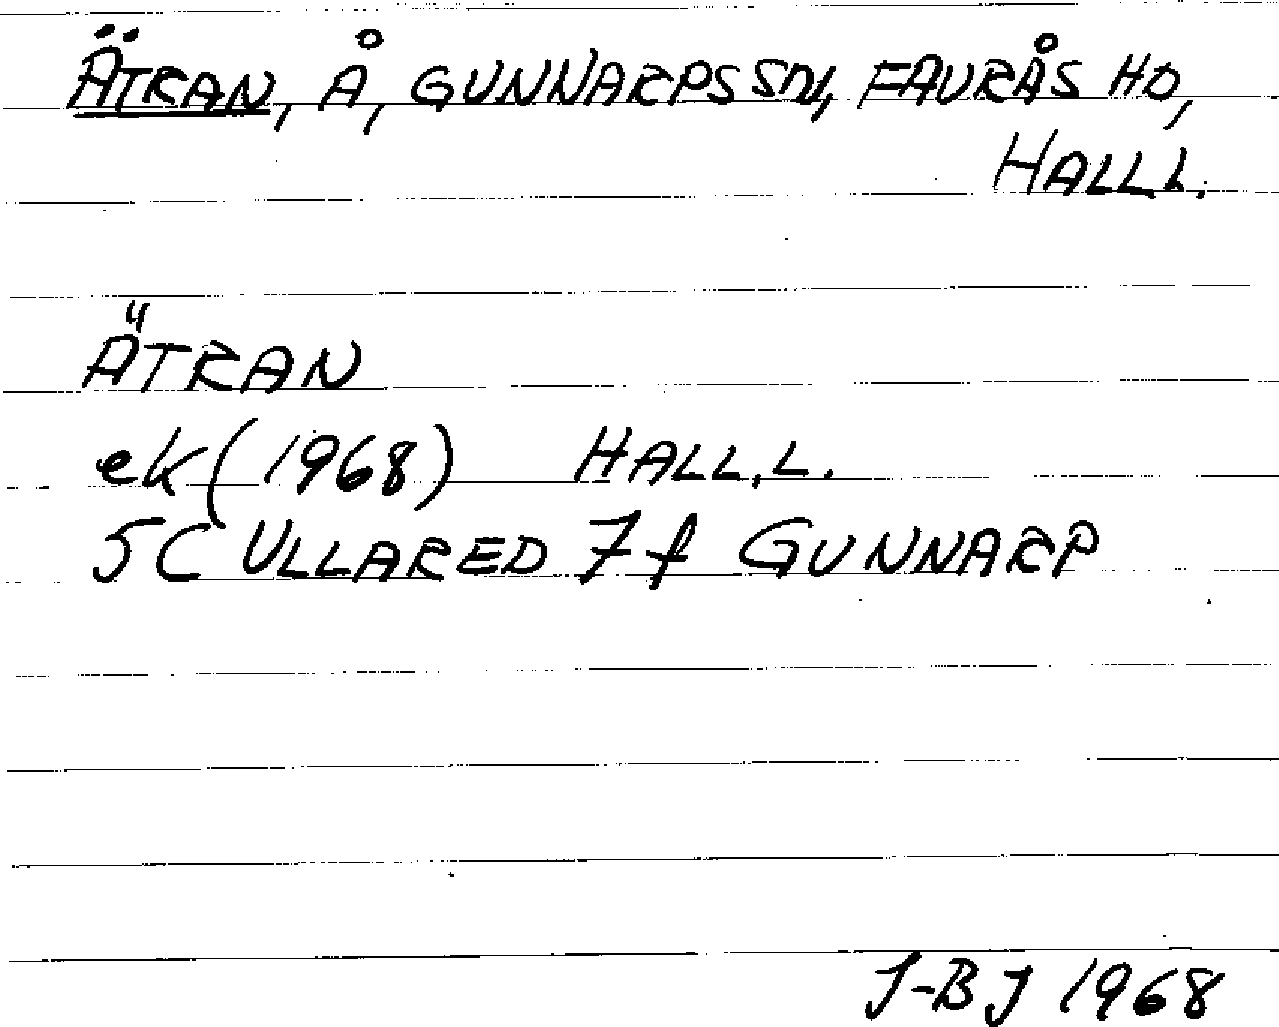 ÄTRAN, Å, GUNNARPS SN, FAURÅS HD,
HALLL.
ÄTRAN
ek (1968) HALL.L.
5C ULLARED 7f GUNNARP
J-BJ 1968